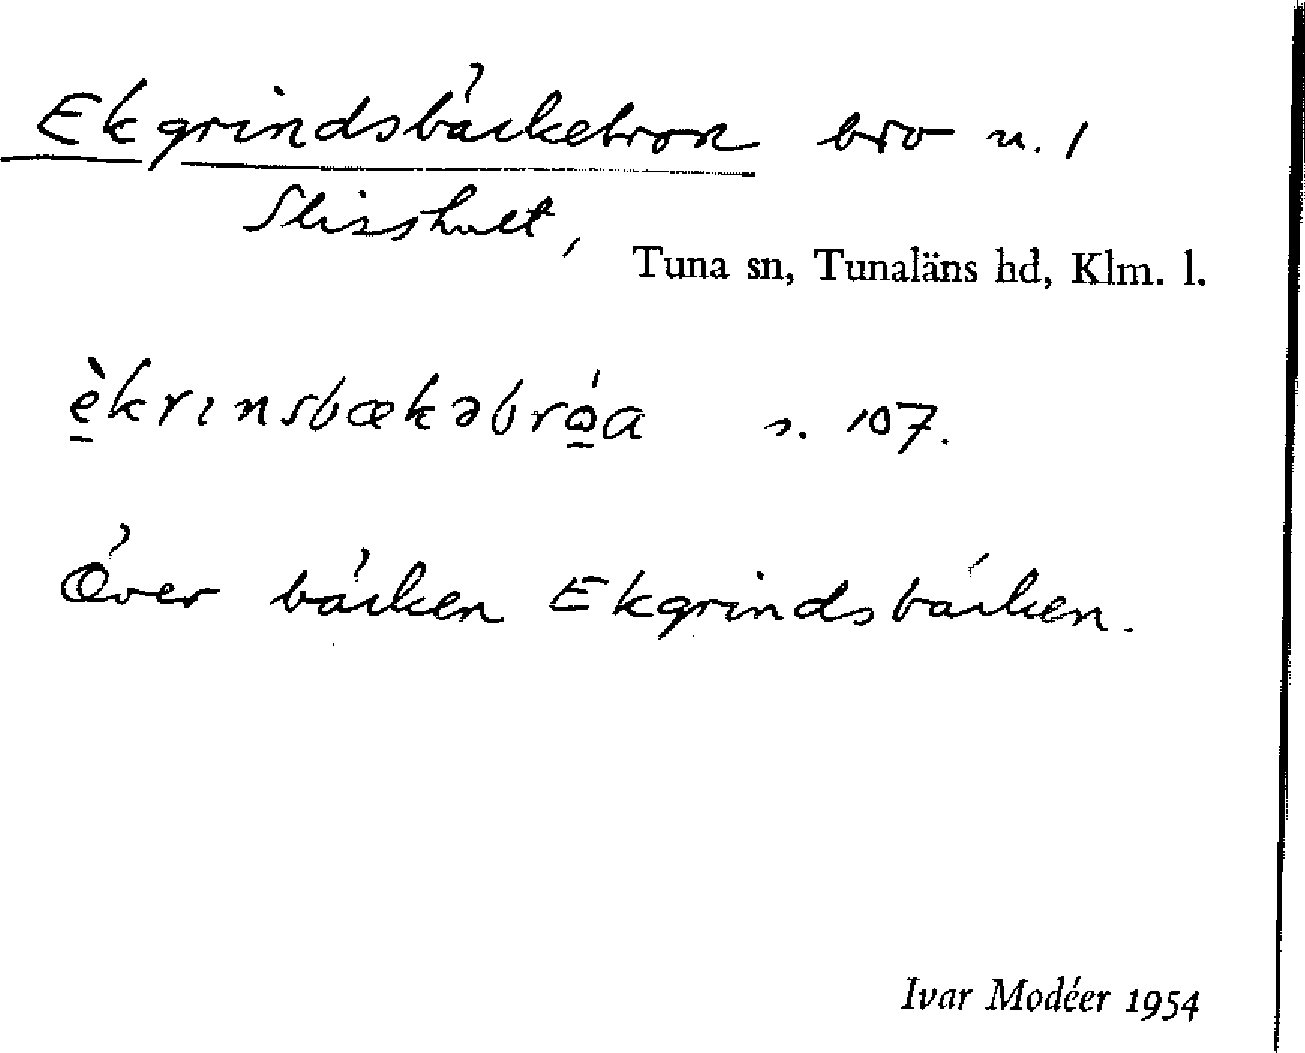 Ekgrindsbäckebron bro n. 1
Slisshult,
Tuna sn, Tunaläns hd, Klm. l.
è̱krɩnsbækəbró̱a s. 107.
Över bäcken Ekgrindsbäcken.
Ivar Modéer 1954